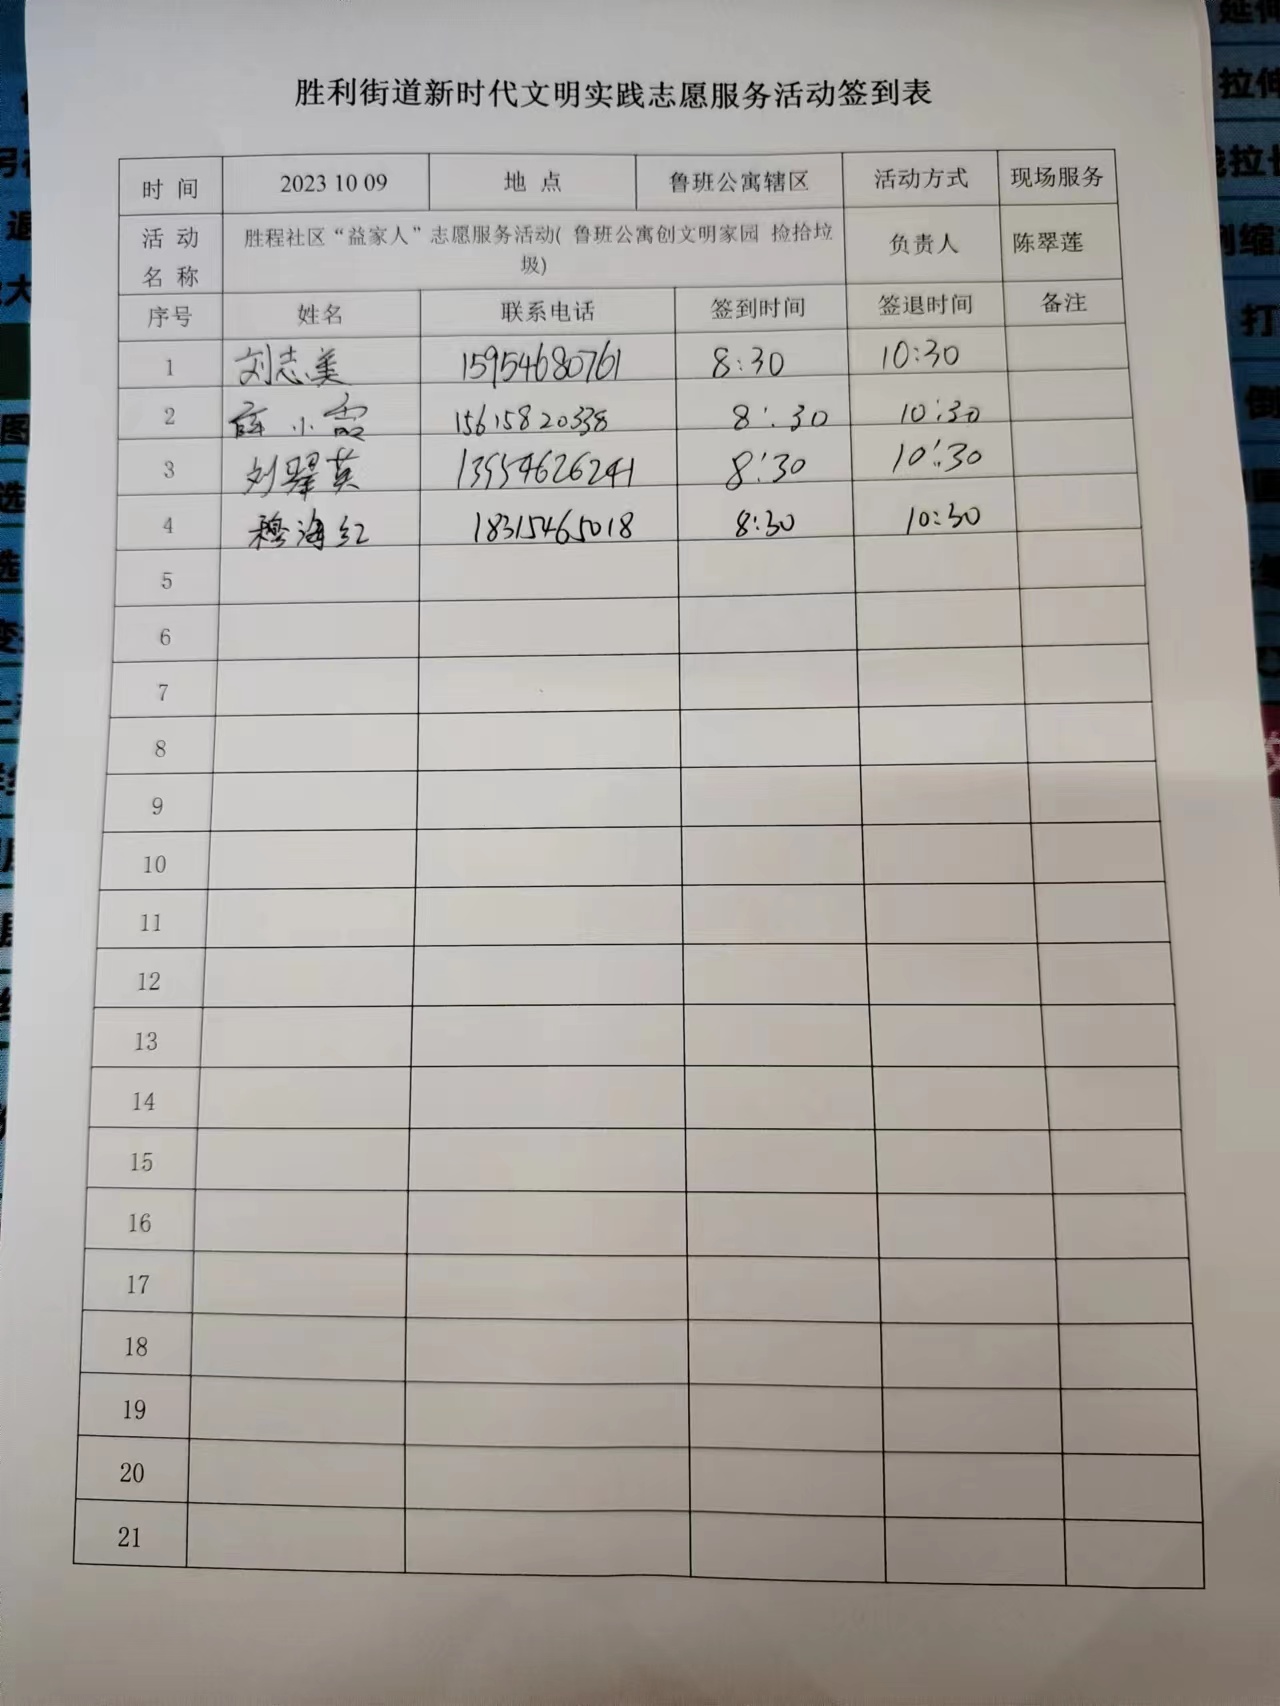 胜利街道新时代文明实践志愿服务活动签到表
时 间 2023 10 09 地 点 鲁班公寓辖区 活动方式 现场服务
活 动 名 称 胜程社区“益家人”志愿服务活动( 鲁班公寓创文明家园 捡拾垃圾) 负责人 陈翠莲
序号 姓名 联系电话 签到时间 签退时间 备注
1 刘志美 15954680761 8:30 10:30
2 薛小霞 15615820338 8:30 10:30
3 刘翠英 13954626241 8:30 10:30
4 穆海红 18315465018 8:30 10:30
5
6
7
8
9
10
11
12
13
14
15
16
17
18
19
20
21